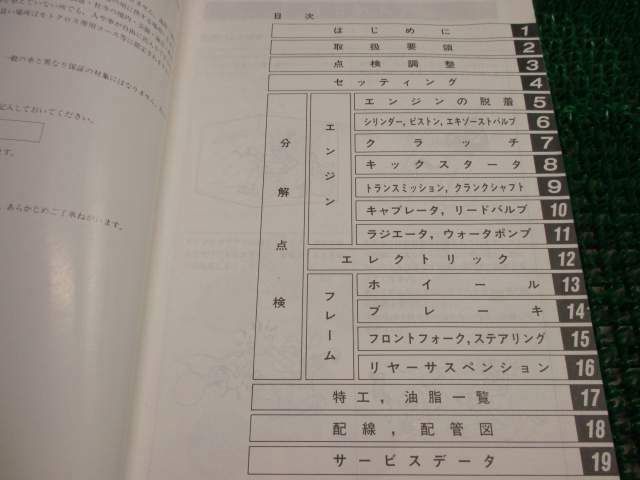 目 次
はじめに 1
取扱要領 2
点検調整 3
セッティング 4
分解点検
エンジン
エンジンの脱着 5
シリンダー, ピストン, エキゾーストバルブ 6
クラッチ 7
キックスタータ 8
トランスミッション, クランクシャフト 9
キャブレータ, リードバルブ 10
ラジエータ, ウォータポンプ 11
エレクトリック 12
フレーム
ホイール 13
ブレーキ 14
フロントフォーク, ステアリング 15
リヤーサスペンション 16
特工, 油脂一覧 17
配線, 配管図 18
サービスデータ 19
一般の車と異なり保証の対象にはなりません。
記入しておいてください。
ます。
あらかじめご了承ねがいます。